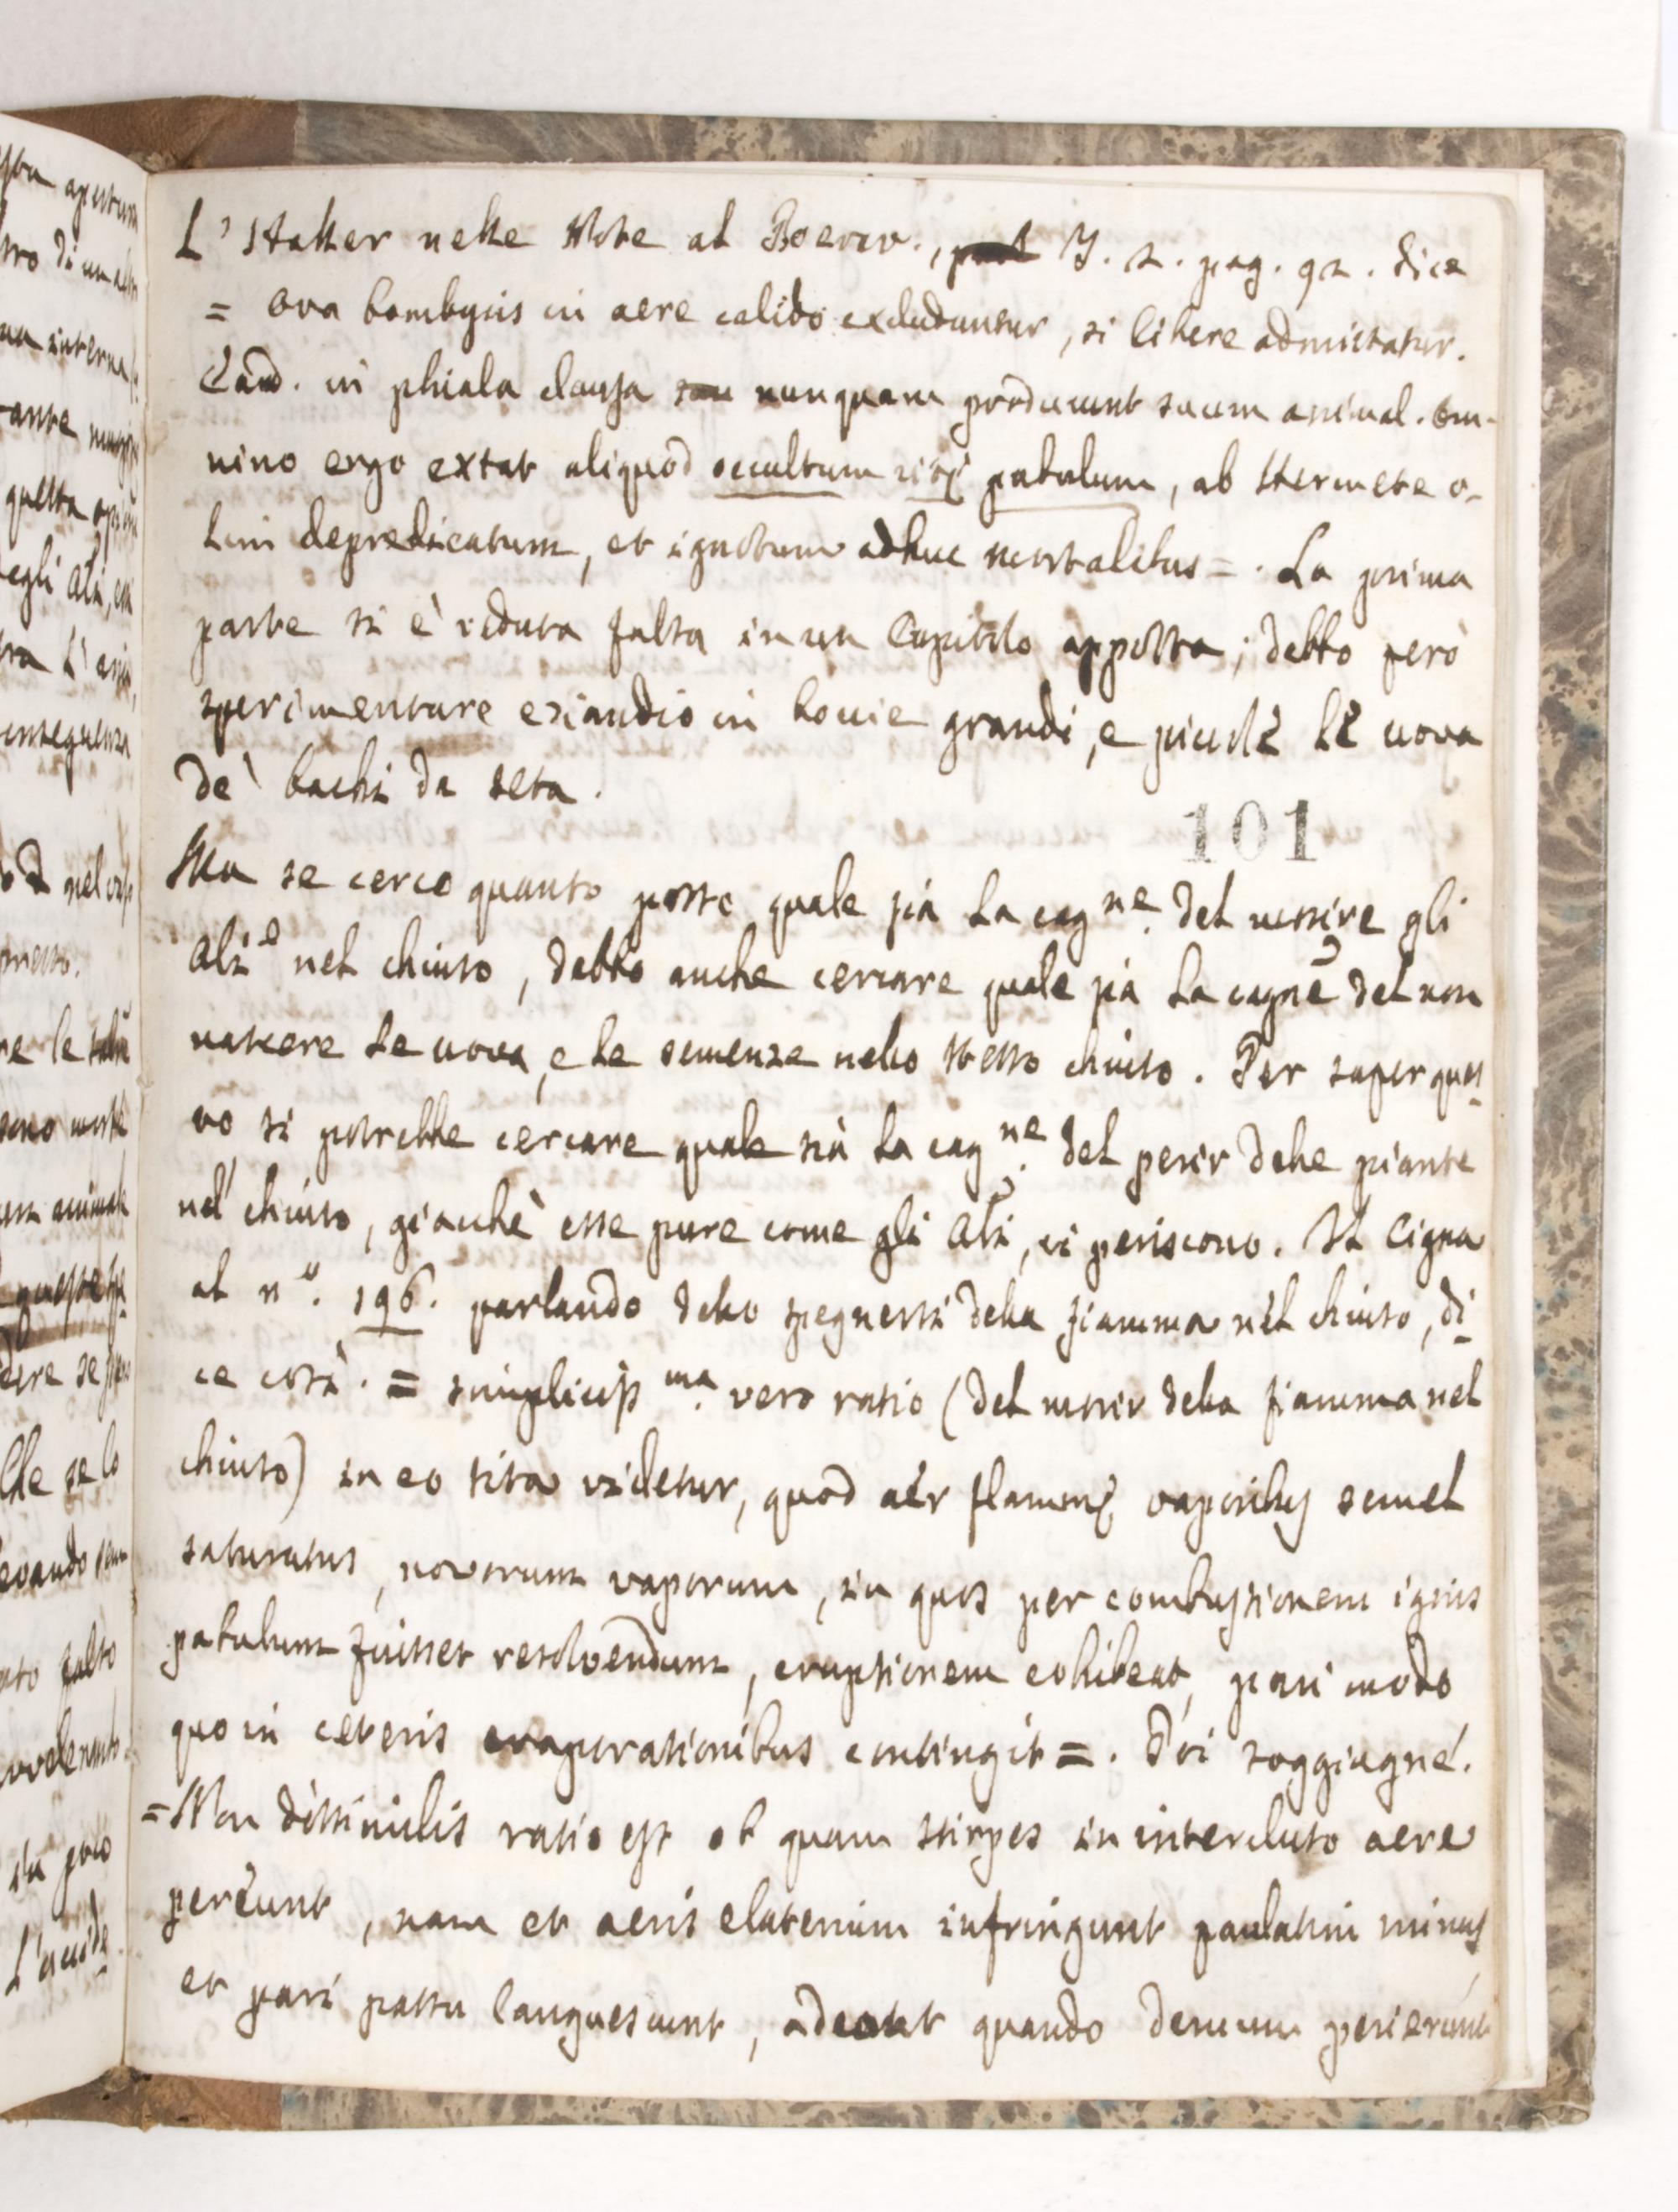 L'Haller nelle Note al Boerav., T. 2. pag. 92. dice
= Ova bombycis in aere calido excluduntur, si libere admittatur.
Ead. in phiala clausa nunquam producunt suum animal. Om-
nino ergo extat aliquod occultum vitę pabulum, ab Hermete o-
lim depredicatum, et ignotum adhuc mortalibus =. La prima
parte si è veduta falsa in un Capitolo apposta; debbo però
sperimentare eziandio in bocie grandi, e piccole le uova
de' bachi da seta.
101
Ma se cerco quanto posso quale sia la cagne. del morire gli
Ali nel chiuso, debbo anche cercare quale sia la cagne del non
nascere le uova, e le semenze nello stesso chiuso. Per saper ques
to si potrebbe cercare quale sia la cagne. del perir delle piante
nel chiuso, giacchè esse pure come gli Ali, vi periscono. Il Cigna
al no. 196. parlando dello spegnersi della fiamma nel chiuso, di-
ce così. = simplicissma. vero ratio (del morir della fiamma nel
chiuso) in eo sita videtur, quod aër flammę vaporibus semel
saturatus, novorum vaporum, in quos per combustionem ignis
pabulum fuisset resolvendum, eruptionem cohibeat, pari modo
quo in ceteris evaporationibus contingit =. Poi soggiugne.
= Non dissimilis ratio est ob quam stirpes in intercluso aere
pereunt, nam et aeris elaterium infringunt paulatim minus
et pari passu languescunt, adeout quando demum perierunt
L'acide